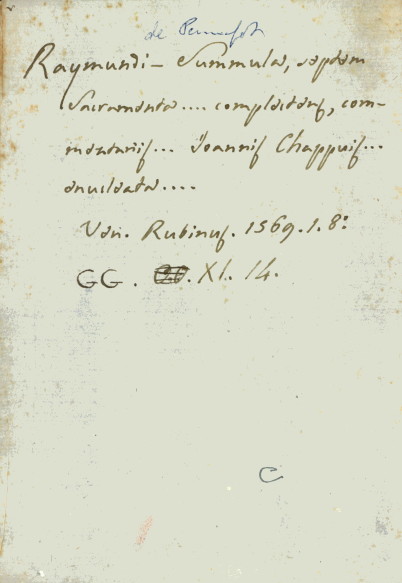 de Pennafort
Raymundi - Summula, septem
Sacramenta .... complectens, com-
mentariis ... Joannis Chappuis ...
enucleata ....
Ven. Rubinus. 1569. 1. 8:
GG. XI. 14.
C